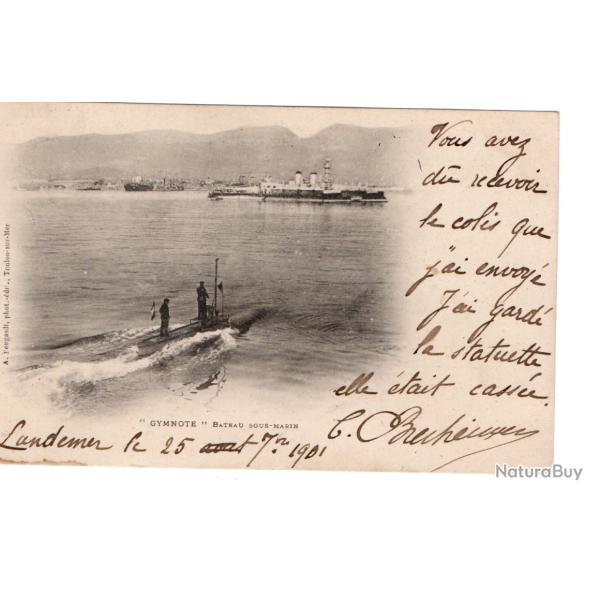 Vous avez
dû recevoir
le colis que
j'ai envoyé
J'ai gardé
la statuette
elle était cassée.
A. Fougault, phot.-édr., Toulon-sur-Mer
" GYMNOTE " BATEAU SOUS-MARIN
Landemer le 25 aout 7re 1901
NaturaBuy